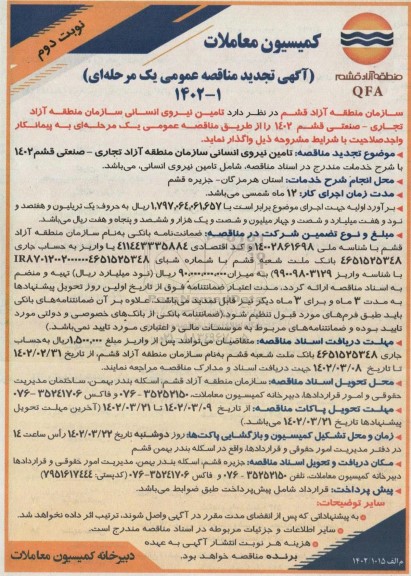 نوبت دوم
کمیسیون معاملات
(آگهی تجدید مناقصه عمومی یک مرحله‌ای)
۱۴۰۲-۱
منطقه آزاد قشم
QFA
سازمان منطقه آزاد قشم در نظر دارد تامین نیروی انسانی سازمان منطقه آزاد
تجاری - صنعتی قشم ۱۴۰۲ را از طریق مناقصه عمومی یک مرحله‌ای به پیمانکار
واجدصلاحیت با شرایط مشروحه ذیل واگذار نماید.
موضوع تجدید مناقصه: تامین نیروی انسانی سازمان منطقه آزاد تجاری - صنعتی قشم۱۴۰۲
با شرح خدمات مندرج در اسناد مناقصه، شامل تامین نیروی انسانی، می‌باشد.
محل انجام شرح خدمات: استان هرمزگان- جزیره قشم
مدت زمان اجرای کار: ۱۲ ماه شمسی می‌باشد.
برآورد اولیه جهت اجرای موضوع برابر است با ۱,۷۹۷,۰۶۴,۰۶۱,۶۵۷ ریال به حروف یک تریلیون و هفتصد و
نود و هفت میلیارد و شصت و چهار میلیون و شصت و یک هزار و ششصد و پنجاه و هفت ریال می‌باشد.
مبلغ و نوع تضمین شرکت در مناقصه: ضمانت‌نامه بانکی به‌نام سازمان منطقه آزاد
قشم با شناسه ملی ۱۴۰۰۲۸۶۱۶۹۸ و کد اقتصادی ۴۱۱۴۴۳۳۳۵۸۸۴ یا واریز به حساب جاری
۴۶۵۱۵۲۵۳۴۸ بانک ملت شعبه قشم با شماره شبای
با شناسه واریز (۹۹۰۰۹۸۰۳۱۲۹) به میزان ۹۰,۰۰۰,۰۰۰,۰۰۰ ریال (نود میلیارد ریال) تهیه و منضم
به اسناد مناقصه ارائه گردد. مدت اعتبار ضمانتنامه فوق از تاریخ اولین روز تحویل پیشنهادها
به مدت ۳ ماه و برای ۳ ماه دیگر نیز قابل تمدید می‌باشند. علاوه بر آن ضمانتنامه‌های بانکی
باید طبق فرم‌های مورد قبول تنظیم شود.(ضمانتنامه بانکی از بانک‌های خصوصی و دولتی مورد
تایید بوده و ضمانتنامه‌های مربوط به موسسات مالی و اعتباری مورد تایید نمی‌باشد.)
مهلت دریافت اسناد مناقصه: متقاضیان می‌توانند پس از واریز مبلغ ۱,۵۰۰,۰۰۰ ریال به‌حساب
جاری ۴۶۵۱۵۲۵۳۴۸ بانک ملت شعبه قشم به‌نام سازمان منطقه آزاد قشم، از تاریخ ۱۴۰۲/۰۲/۳۱
تا تاریخ ۱۴۰۲/۰۳/۰۸ جهت دریافت اسناد و مدارک مناقصه مراجعه نمایند.
محل تحویل اسناد مناقصه: سازمان منطقه آزاد قشم، اسکله بندر بهمن، ساختمان مدیریت
حقوقی و امور قراردادها، دبیرخانه کمیسیون معاملات، ۳۵۲۵۲۱۵۰-۰۷۶ و فاکس ۳۵۲۴۱۷۰۶-۰۷۶
مهلت تحویل پاکات مناقصه: از تاریخ ۱۴۰۲/۰۳/۰۹ تا ۱۴۰۲/۰۳/۲۱ (آخرین مهلت تحویل
پیشنهادها تاریخ ۱۴۰۲/۰۳/۲۱ می‌باشد.)
زمان و محل تشکیل کمیسیون و بازگشایی پاکت‌ها: روز دوشنبه تاریخ ۱۴۰۲/۰۳/۲۲ رأس ساعت ۱۴
در دفتر مدیریت امور حقوقی و قراردادها، واقع در اسکله بندر بهمن قشم
مکان دریافت و تحویل اسناد مناقصه: جزیره قشم، اسکله بندر بهمن، مدیریت امور حقوقی و قراردادها
دبیرخانه کمیسیون معاملات، تلفن ۳۵۲۵۲۱۵۰-۰۷۶ و فاکس ۳۵۲۴۱۷۰۶-۰۷۶ (کدپستی: ۷۹۵۱۶۱۷۴۴۴)
پیش پرداخت: قرارداد شامل پیش‌پرداخت طبق ضوابط می‌باشد.
سایر توضیحات:
به پیشنهاداتی که پس از انقضای مدت مقرر در آگهی واصل شوند، ترتیب اثر داده نخواهد شد.
سایر اطلاعات و جزئیات مربوطه در اسناد مناقصه مندرج است.
هزینه هر نوبت انتشار آگهی به عهده
برنده مناقصه خواهد بود.
دبیرخانه کمیسیون معاملات
م الف ۱۴۰۲/۱۰۱۵